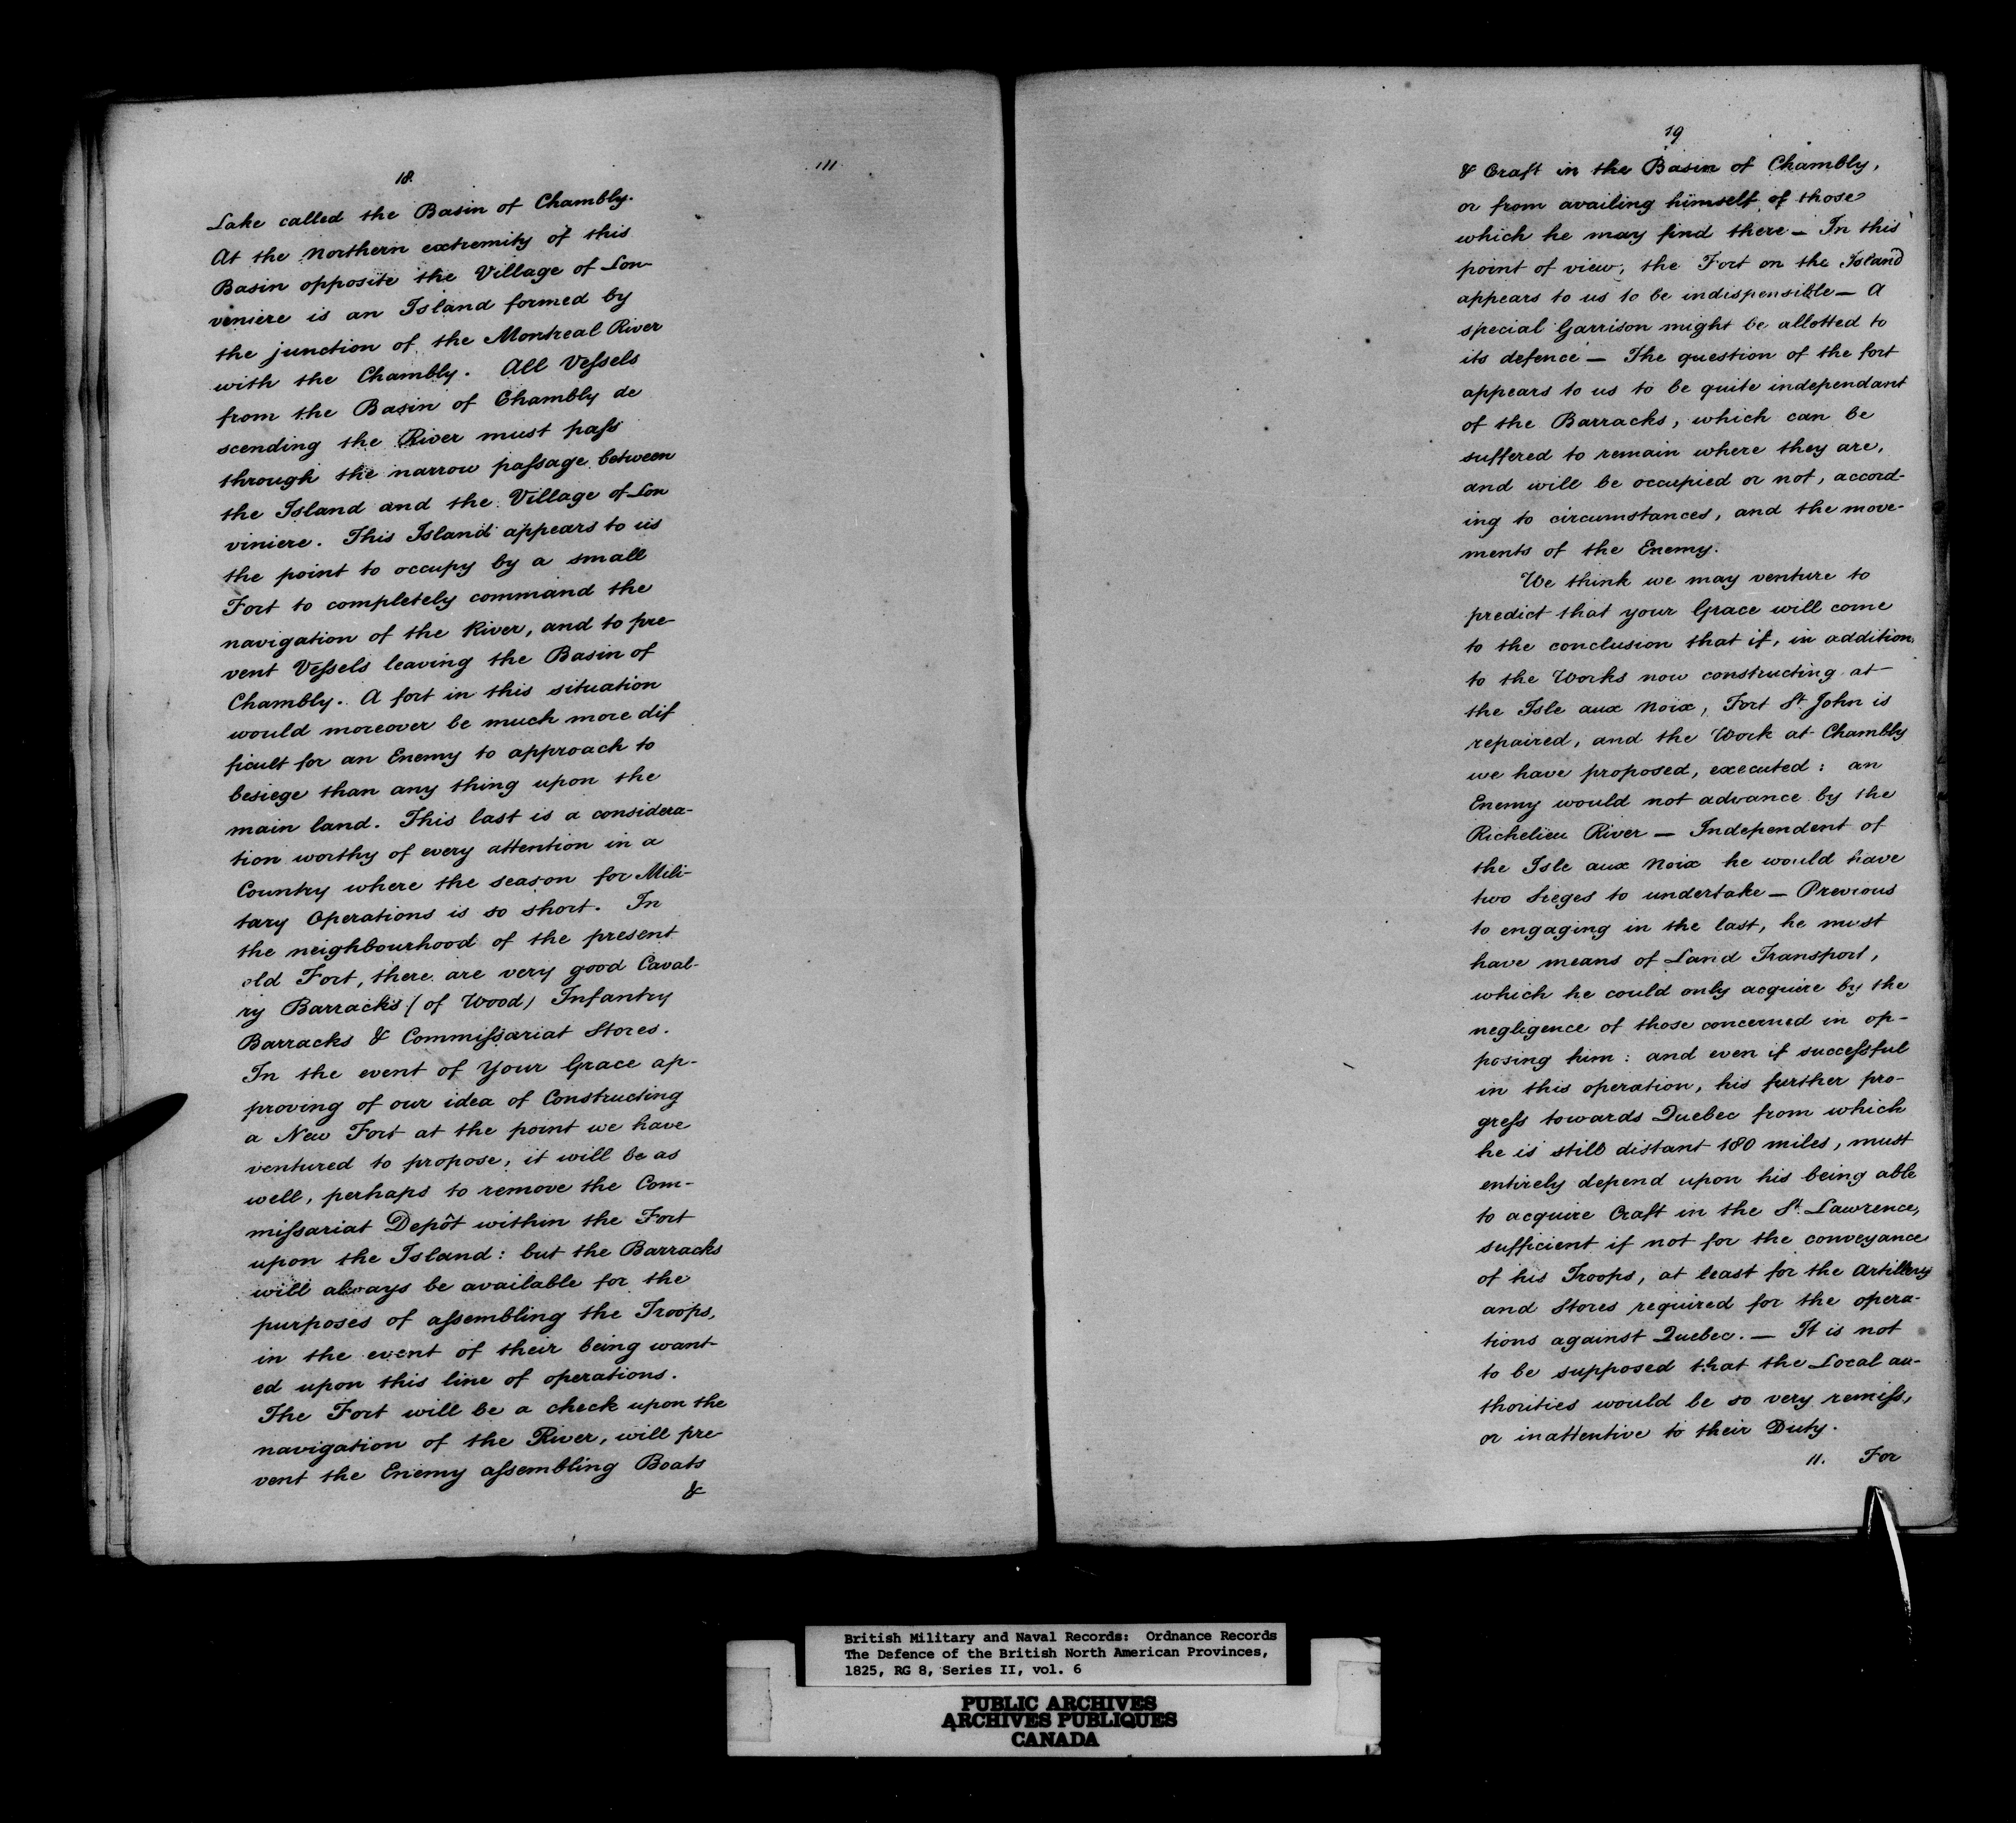 18.
Lake called the Basin of Chambly.
At the Northern extremity of this
Basin opposite the Village of Lon-
veniere is an Island formed by
the junction of the Montreal River
with the Chambly. All Vessels
from the Basin of Chambly de
scending the River must pass
through the narrow passage between
the Island and the Village of Lon
viniere. This Island appears to us
the point to occupy by a small
Fort to completely command the
navigation of the River, and to pre-
vent Vessels leaving the Basin of
Chambly. A fort in this situation
would moreover be much more dif
ficult for an Enemy to approach to
besiege than any thing upon the
main land. This last is a considera-
tion worthy of every attention in a
Country where the season for Mili-
tary Operations is so short. In
the neighbourhood of the present
old Fort, there are very good Caval-
ry Barracks (of Wood) Infantry
Barracks & Commissariat Stores.
In the event of Your Grace ap-
proving of our idea of Constructing
a New Fort at the point we have
ventured to propose, it will be as
well, perhaps to remove the Com-
missariat Depôt within the Fort
upon the Island: but the Barracks
will always be available for the
purposes of assembling the Troops,
in the event of their being want-
ed upon this line of operations.
The Fort will be a check upon the
navigation of the River, will pre-
vent the Enemy assembling Boats
&
19
& Craft in the Basin of Chambly,
or from availing himself of those
which he may find there — In this
point of view, the Fort on the Island
appears to us to be indispensible — A
special Garrison might be allotted to
its defence — The question of the fort
appears to us to be quite independant
of the Barracks, which can be
suffered to remain where they are,
and will be occupied or not, accord-
ing to circumstances, and the move-
ments of the Enemy.
We think we may venture to
predict that your Grace will come
to the conclusion that if, in addition
to the Works now constructing at
the Isle aux Noix, Fort St. John is
repaired, and the Work at Chambly
we have proposed, executed: an
Enemy would not advance by the
Richelieu River — Independent of
the Isle aux Noix he would have
two Sieges to undertake — Previous
to engaging in the last, he must
have means of Land Transport,
which he could only acquire by the
negligence of those concerned in op-
posing him: and even if successful
in this operation, his further pro-
gress towards Quebec from which
he is still distant 180 miles, must
entirely depend upon his being able
to acquire Craft in the St. Lawrence,
sufficient if not for the conveyance
of his Troops, at least for the Artillery
and Stores required for the opera-
tions against Quebec. — It is not
to be supposed that the Local au-
thorities would be so very remiss,
or inattentive to their Duty.
11. For
British Military and Naval Records: Ordnance Records
The Defence of the British North American Provinces,
1825, RG 8, Series II, vol. 6
PUBLIC ARCHIVES
ARCHIVES PUBLIQUES
CANADA